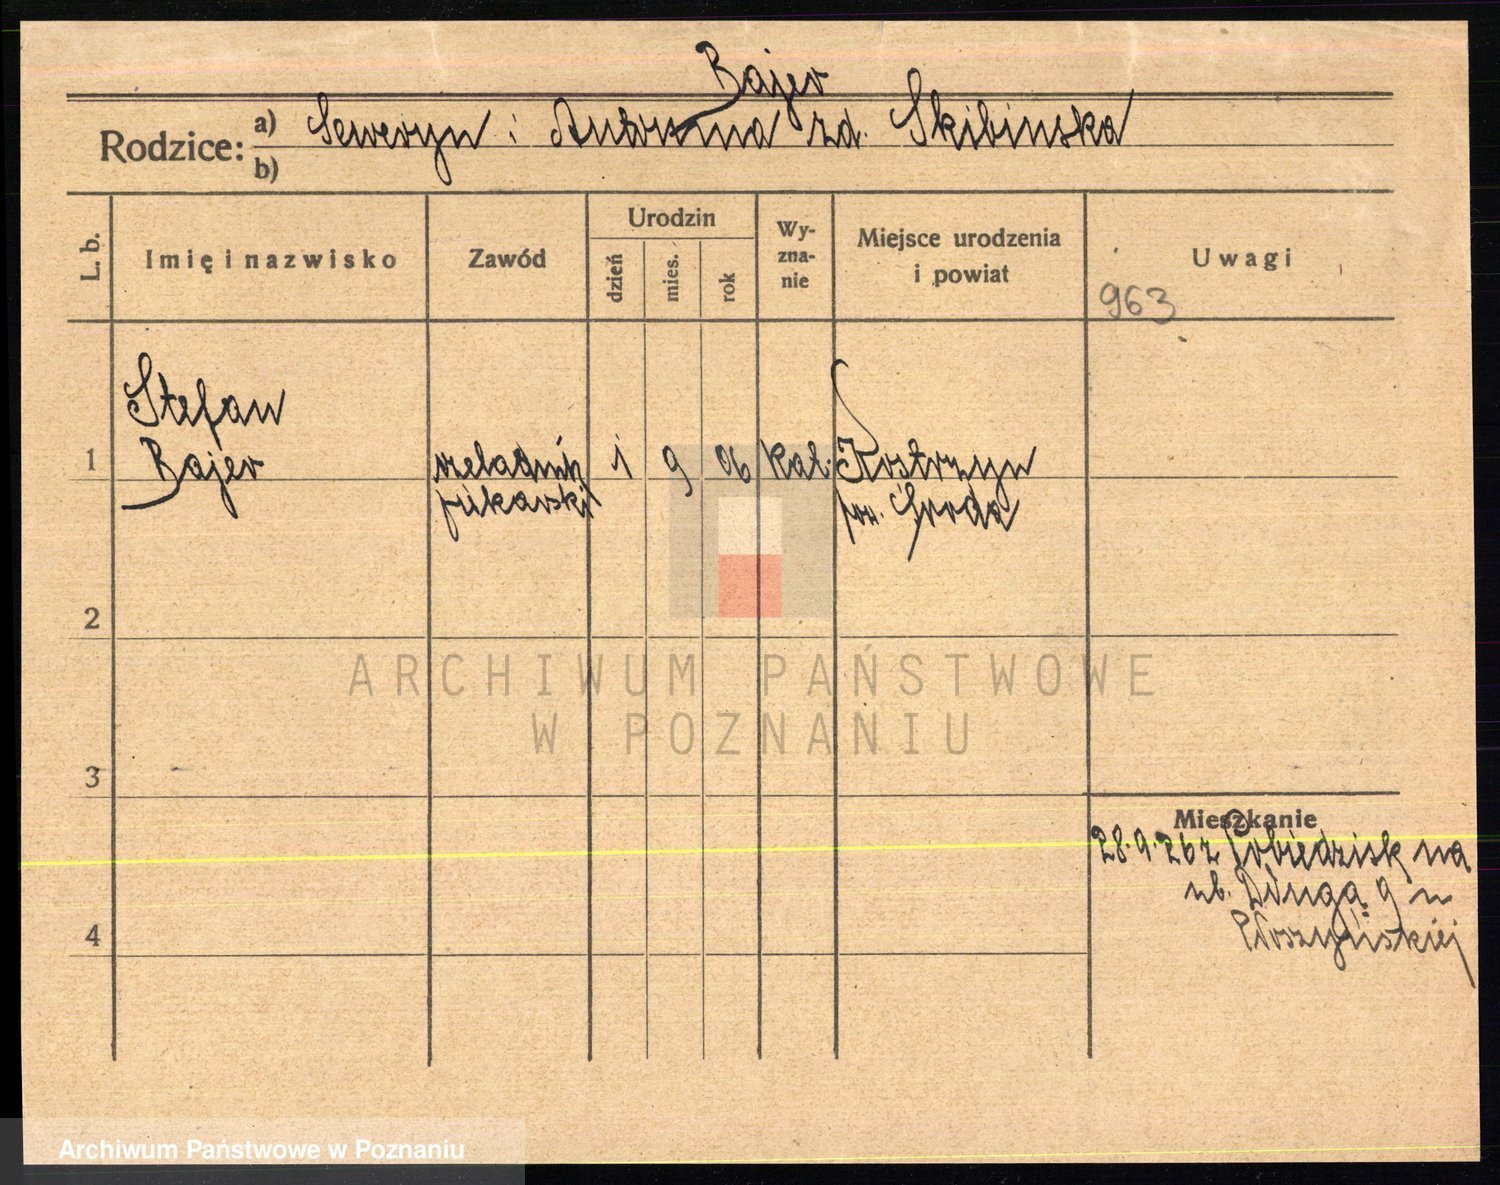 Bajer
Rodzice:
a) Seweryn i Antonina zd. Skibinska
b)
L. b.
Imię i nazwisko
Zawód
Urodzin
dzień
mies.
rok
Wy-
zna-
nie
Miejsce urodzenia
i powiat
Uwagi
963
Stefan
1 Bajer
czeladnik
piekarski
1 9 06 kat.
Kostrzyn
pow. Środa
2
3
4
Mieszkanie
28.9.26 z Pobiedzisk na
ul. Długą 9 u
ARCHIWUM PAŃSTWOWE
W POZNANIU
Archiwum Państwowe w Poznaniu